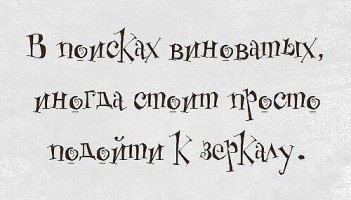 В поисках виноватых,
иногда стоит просто
подойти к зеркалу.